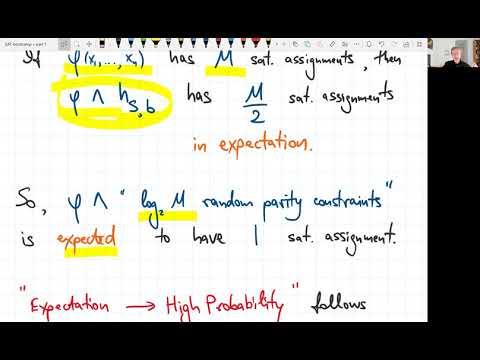 SAT bootcamp - part 1
If φ(x₁,...,xₙ) has M sat. assignments, then
φ ∧ h_{S,b} has M/2 sat. assignments
in expectation.
So, φ ∧ "log₂ M random parity constraints"
is expected to have 1 sat. assignment.
"Expectation → High Probability" follows